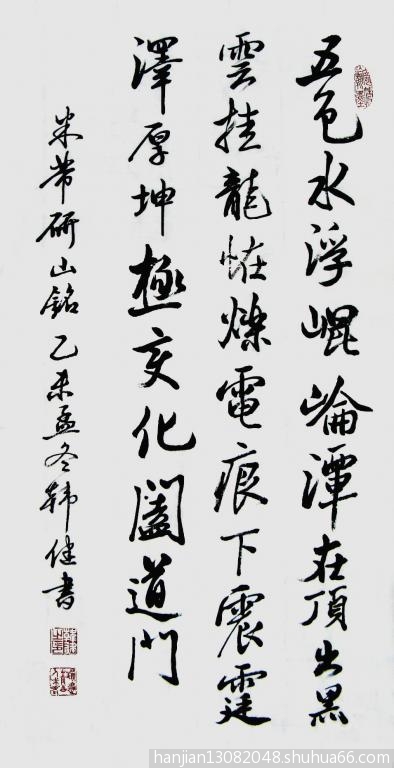 五色水浮崐崘潭在頂出黑
雲挂龍恠爍電痕下震霆
澤厚坤極变化闔道門
米芾研山銘乙未孟冬韩健書
hanjian13082048.shuhua66.com